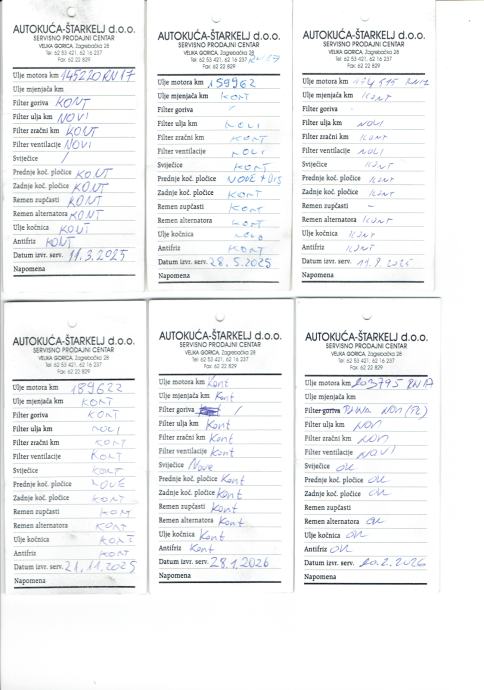 AUTOKUĆA-ŠTARKELJ d.o.o.
SERVISNO PRODAJNI CENTAR
VELIKA GORICA, Zagrebačka 28
Tel: 62 53 421, 62 16 237
Fax: 62 22 829
Ulje motora km 145220 RN 17
Ulje mjenjača km
Filter goriva KONT
Filter ulja km NOVI
Filter zračni km KONT
Filter ventilacije NOVI
Svijećice /
Prednje koč. pločice KONT
Zadnje koč. pločice KONT
Remen zupčasti KONT
Remen alternatora KONT
Ulje kočnica KONT
Antifriz KONT
Datum izvr. serv. 11.3.2025
Napomena
AUTOKUĆA-ŠTARKELJ d.o.o.
SERVISNO PRODAJNI CENTAR
VELIKA GORICA, Zagrebačka 28
Tel: 62 53 421, 62 16 237
Fax: 62 22 829
Ulje motora km 159962
Ulje mjenjača km KONT
Filter goriva /
Filter ulja km NOVI
Filter zračni km KONT
Filter ventilacije NOVI
Svijećice KONT
Prednje koč. pločice NOVE + DIS
Zadnje koč. pločice KONT
Remen zupčasti KONT
Remen alternatora KONT
Ulje kočnica NOVO
Antifriz KONT
Datum izvr. serv. 28.5.2025
Napomena
AUTOKUĆA-ŠTARKELJ d.o.o.
SERVISNO PRODAJNI CENTAR
VELIKA GORICA, Zagrebačka 28
Tel: 62 53 421, 62 16 237
Fax: 62 22 829
Ulje motora km
Ulje mjenjača km KONT
Filter goriva -
Filter ulja km NOVI
Filter zračni km KONT
Filter ventilacije NOVI
Svijećice KONT
Prednje koč. pločice KONT
Zadnje koč. pločice KONT
Remen zupčasti -
Remen alternatora KONT
Ulje kočnica KONT
Antifriz KONT
Datum izvr. serv. 11.9.2025
Napomena
AUTOKUĆA-ŠTARKELJ d.o.o.
SERVISNO PRODAJNI CENTAR
VELIKA GORICA, Zagrebačka 28
Tel: 62 53 421, 62 16 237
Fax: 62 22 829
Ulje motora km 189622
Ulje mjenjača km KONT
Filter goriva KONT
Filter ulja km NOVI
Filter zračni km KONT
Filter ventilacije KONT
Svijećice KONT
Prednje koč. pločice NOVE
Zadnje koč. pločice KONT
Remen zupčasti KONT
Remen alternatora KONT
Ulje kočnica KONT
Antifriz KONT
Datum izvr. serv. 21.11.2025
Napomena
AUTOKUĆA-ŠTARKELJ d.o.o.
SERVISNO PRODAJNI CENTAR
VELIKA GORICA, Zagrebačka 28
Tel: 62 53 421, 62 16 237
Fax: 62 22 829
Ulje motora km Kont
Ulje mjenjača km Kont
Filter goriva /
Filter ulja km Kont
Filter zračni km Kont
Filter ventilacije Kont
Svijećice Nove
Prednje koč. pločice Kont
Zadnje koč. pločice Kont
Remen zupčasti Kont
Remen alternatora Kont
Ulje kočnica Kont
Antifriz Kont
Datum izvr. serv. 28.1.2026
Napomena
AUTOKUĆA-ŠTARKELJ d.o.o.
SERVISNO PRODAJNI CENTAR
VELIKA GORICA, Zagrebačka 28
Tel: 62 53 421, 62 16 237
Fax: 62 22 829
Ulje motora km 203795
Ulje mjenjača km
Filter goriva
Filter ulja km NOVI
Filter zračni km NOVI
Filter ventilacije NOVI
Svijećice OK
Prednje koč. pločice OK
Zadnje koč. pločice OK
Remen zupčasti
Remen alternatora OK
Ulje kočnica OK
Antifriz OK
Datum izvr. serv. 20.2.2026
Napomena